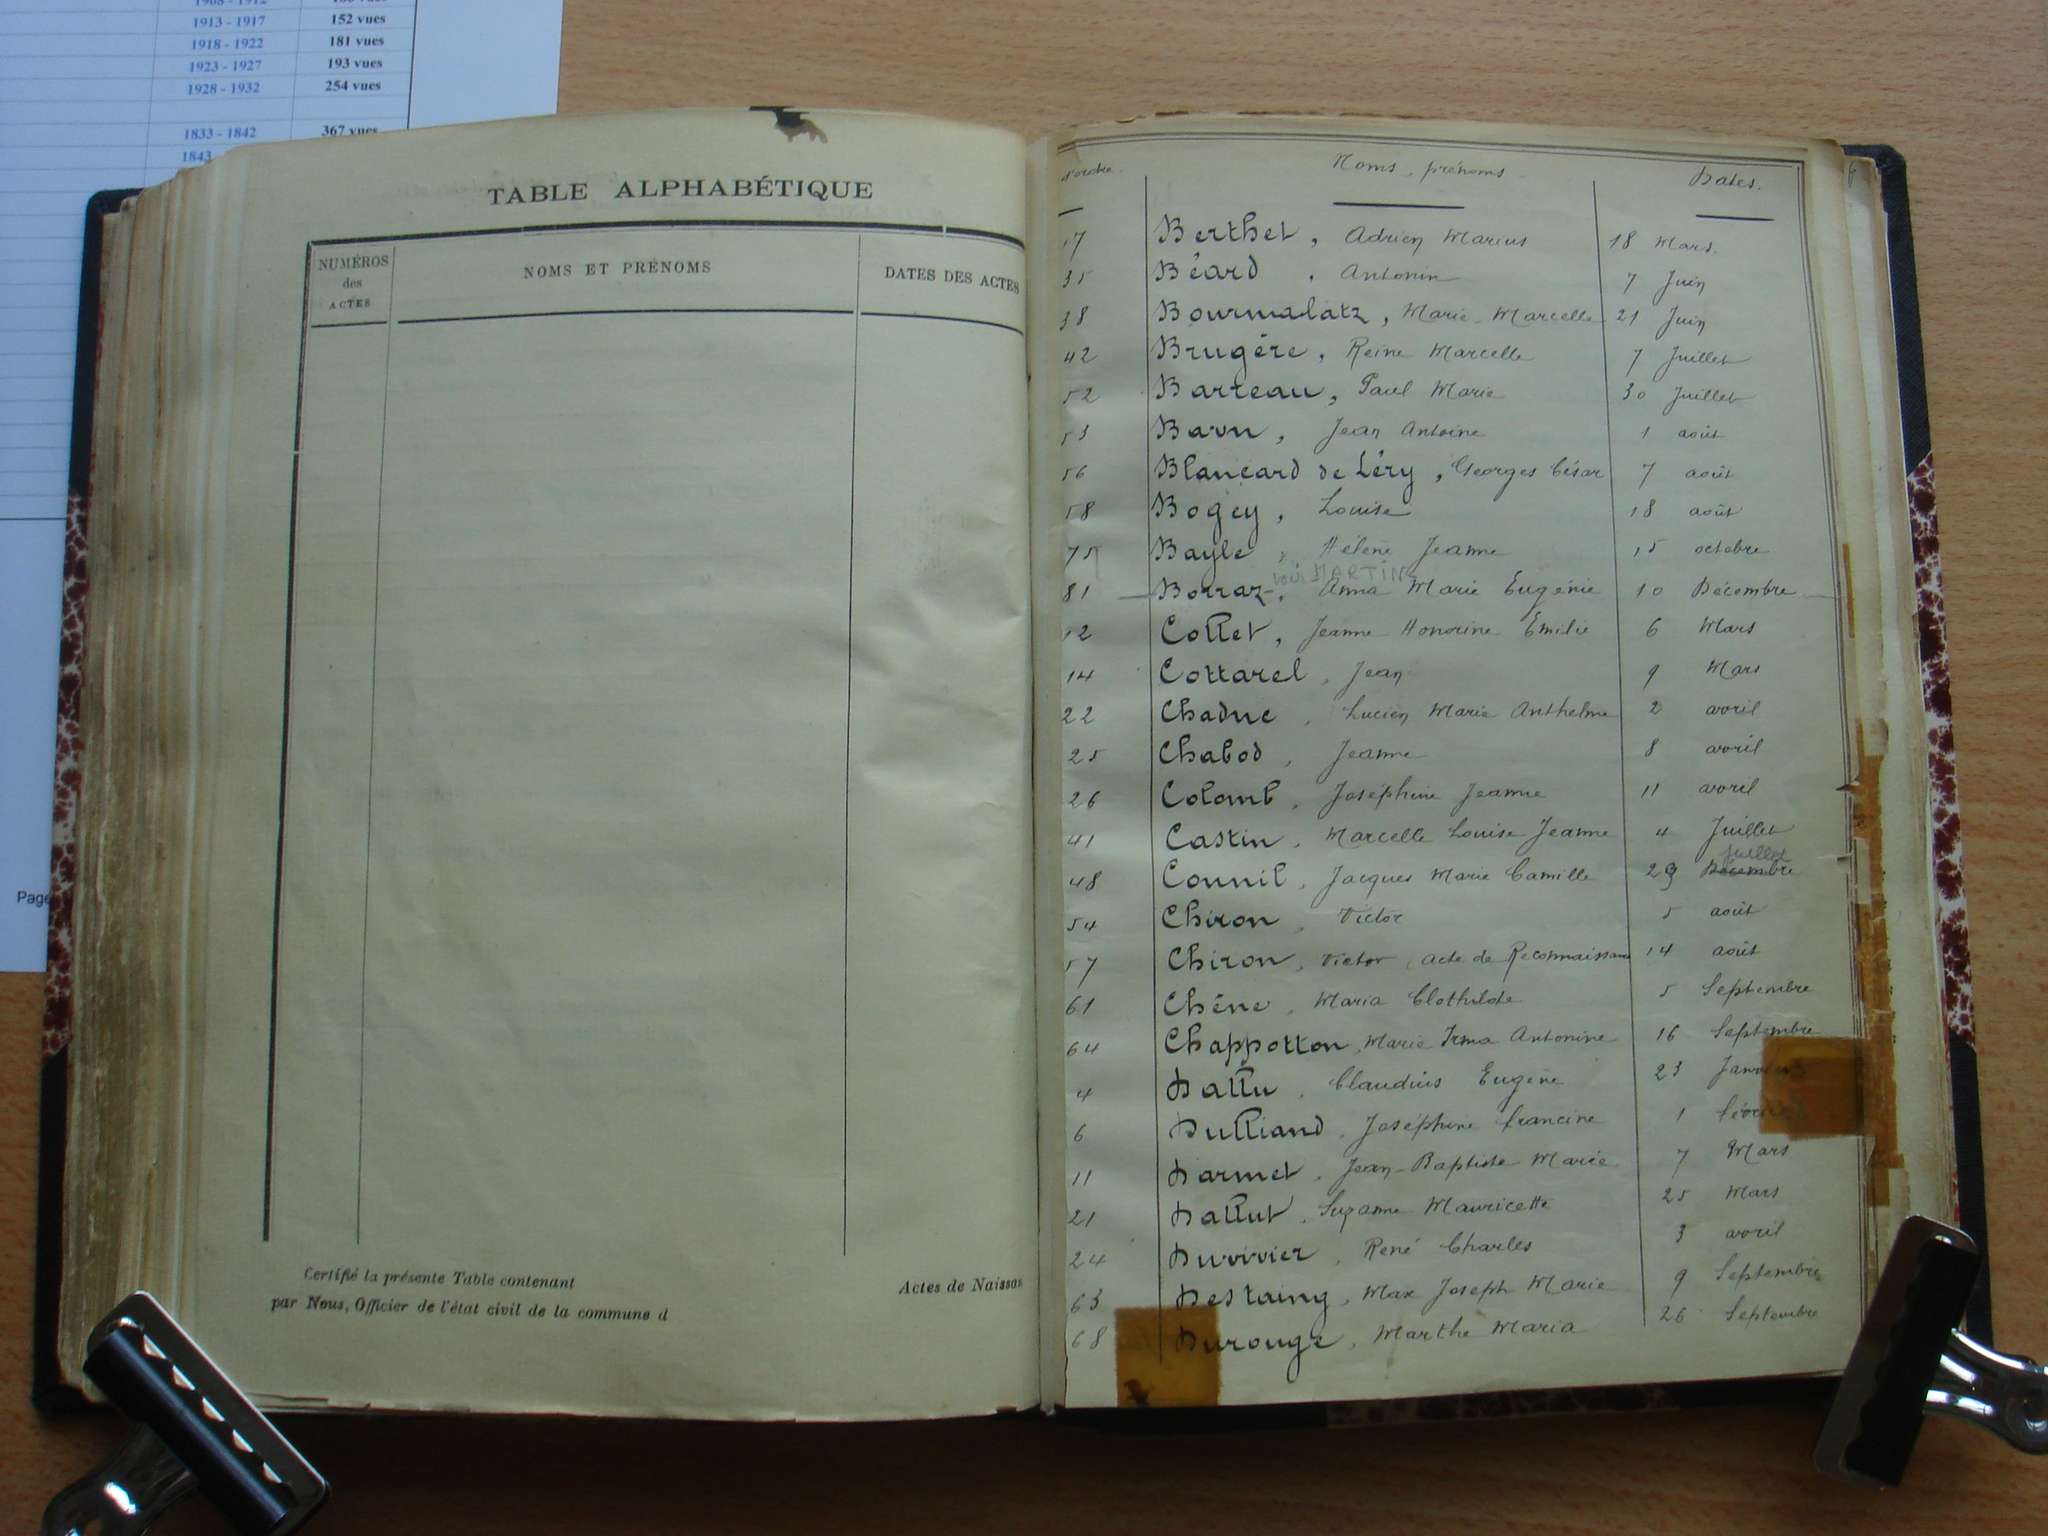 1913 - 1917 152 vues
1918 - 1922 181 vues
1923 - 1927 193 vues
1928 - 1932 254 vues
1833 - 1842 367 vues
1843
Page
TABLE ALPHABÉTIQUE
NUMÉROS des ACTES
NOMS ET PRÉNOMS
DATES DES ACTES
Certifié la présente Table contenant Actes de Naissan
par Nous, Officier de l'état civil de la commune d
d'ordre. Noms, prénoms Dates.
17 Berthet, Adrien Marius 18 Mars.
35 Béard, Antonin 7 Juin
38 Bourmalatz, Marie-Marcelle 21 Juin
42 Brugère, Reine Marcelle 7 Juillet
52 Barteau, Paul Marie 30 Juillet
53 Jean Antoine 1 août
56 Blancard de Léry, Georges César 7 août
58 Bogey, Louise 18 août
75 Bayle, Hélène Jeanne 15 octobre
voir MARTIN
81 Borraz, Anna Marie Eugénie 10 Décembre
12 Collet, Jeanne Honorine Emilie 6 Mars
14 Cottarel, Jean 9 Mars
22 Chaduc, Lucien Marie Anthelme 2 avril
25 Chabod, Jeanne 8 avril
26 Colomb, Joséphine Jeanne 11 avril
41 Castin, Marcelle Louise Jeanne 4 Juillet
juillet
48 Connil, Jacques Marie Camille 29 Décembre
54 Chiron, Victor 5 août
57 Chiron, Victor, acte de Reconnaissance 14 août
61 Chêne, Maria Clothilde 5 Septembre
64 Chappotton, Marie Irma Antonine 16 Septembre
4 Dallu, Claudius Eugène 23 Janvier
6 Dulliand, Joséphine francine 1 février
11 Darmet, Jean-Baptiste Marie 7 Mars
21 Dallut, Suzanne Mauricette 25 Mars
24 Duvivier, René Charles 3 avril
63 Destaing, Max Joseph Marie 9 Septembre
68 Durouge, Marthe Maria 26 Septembre